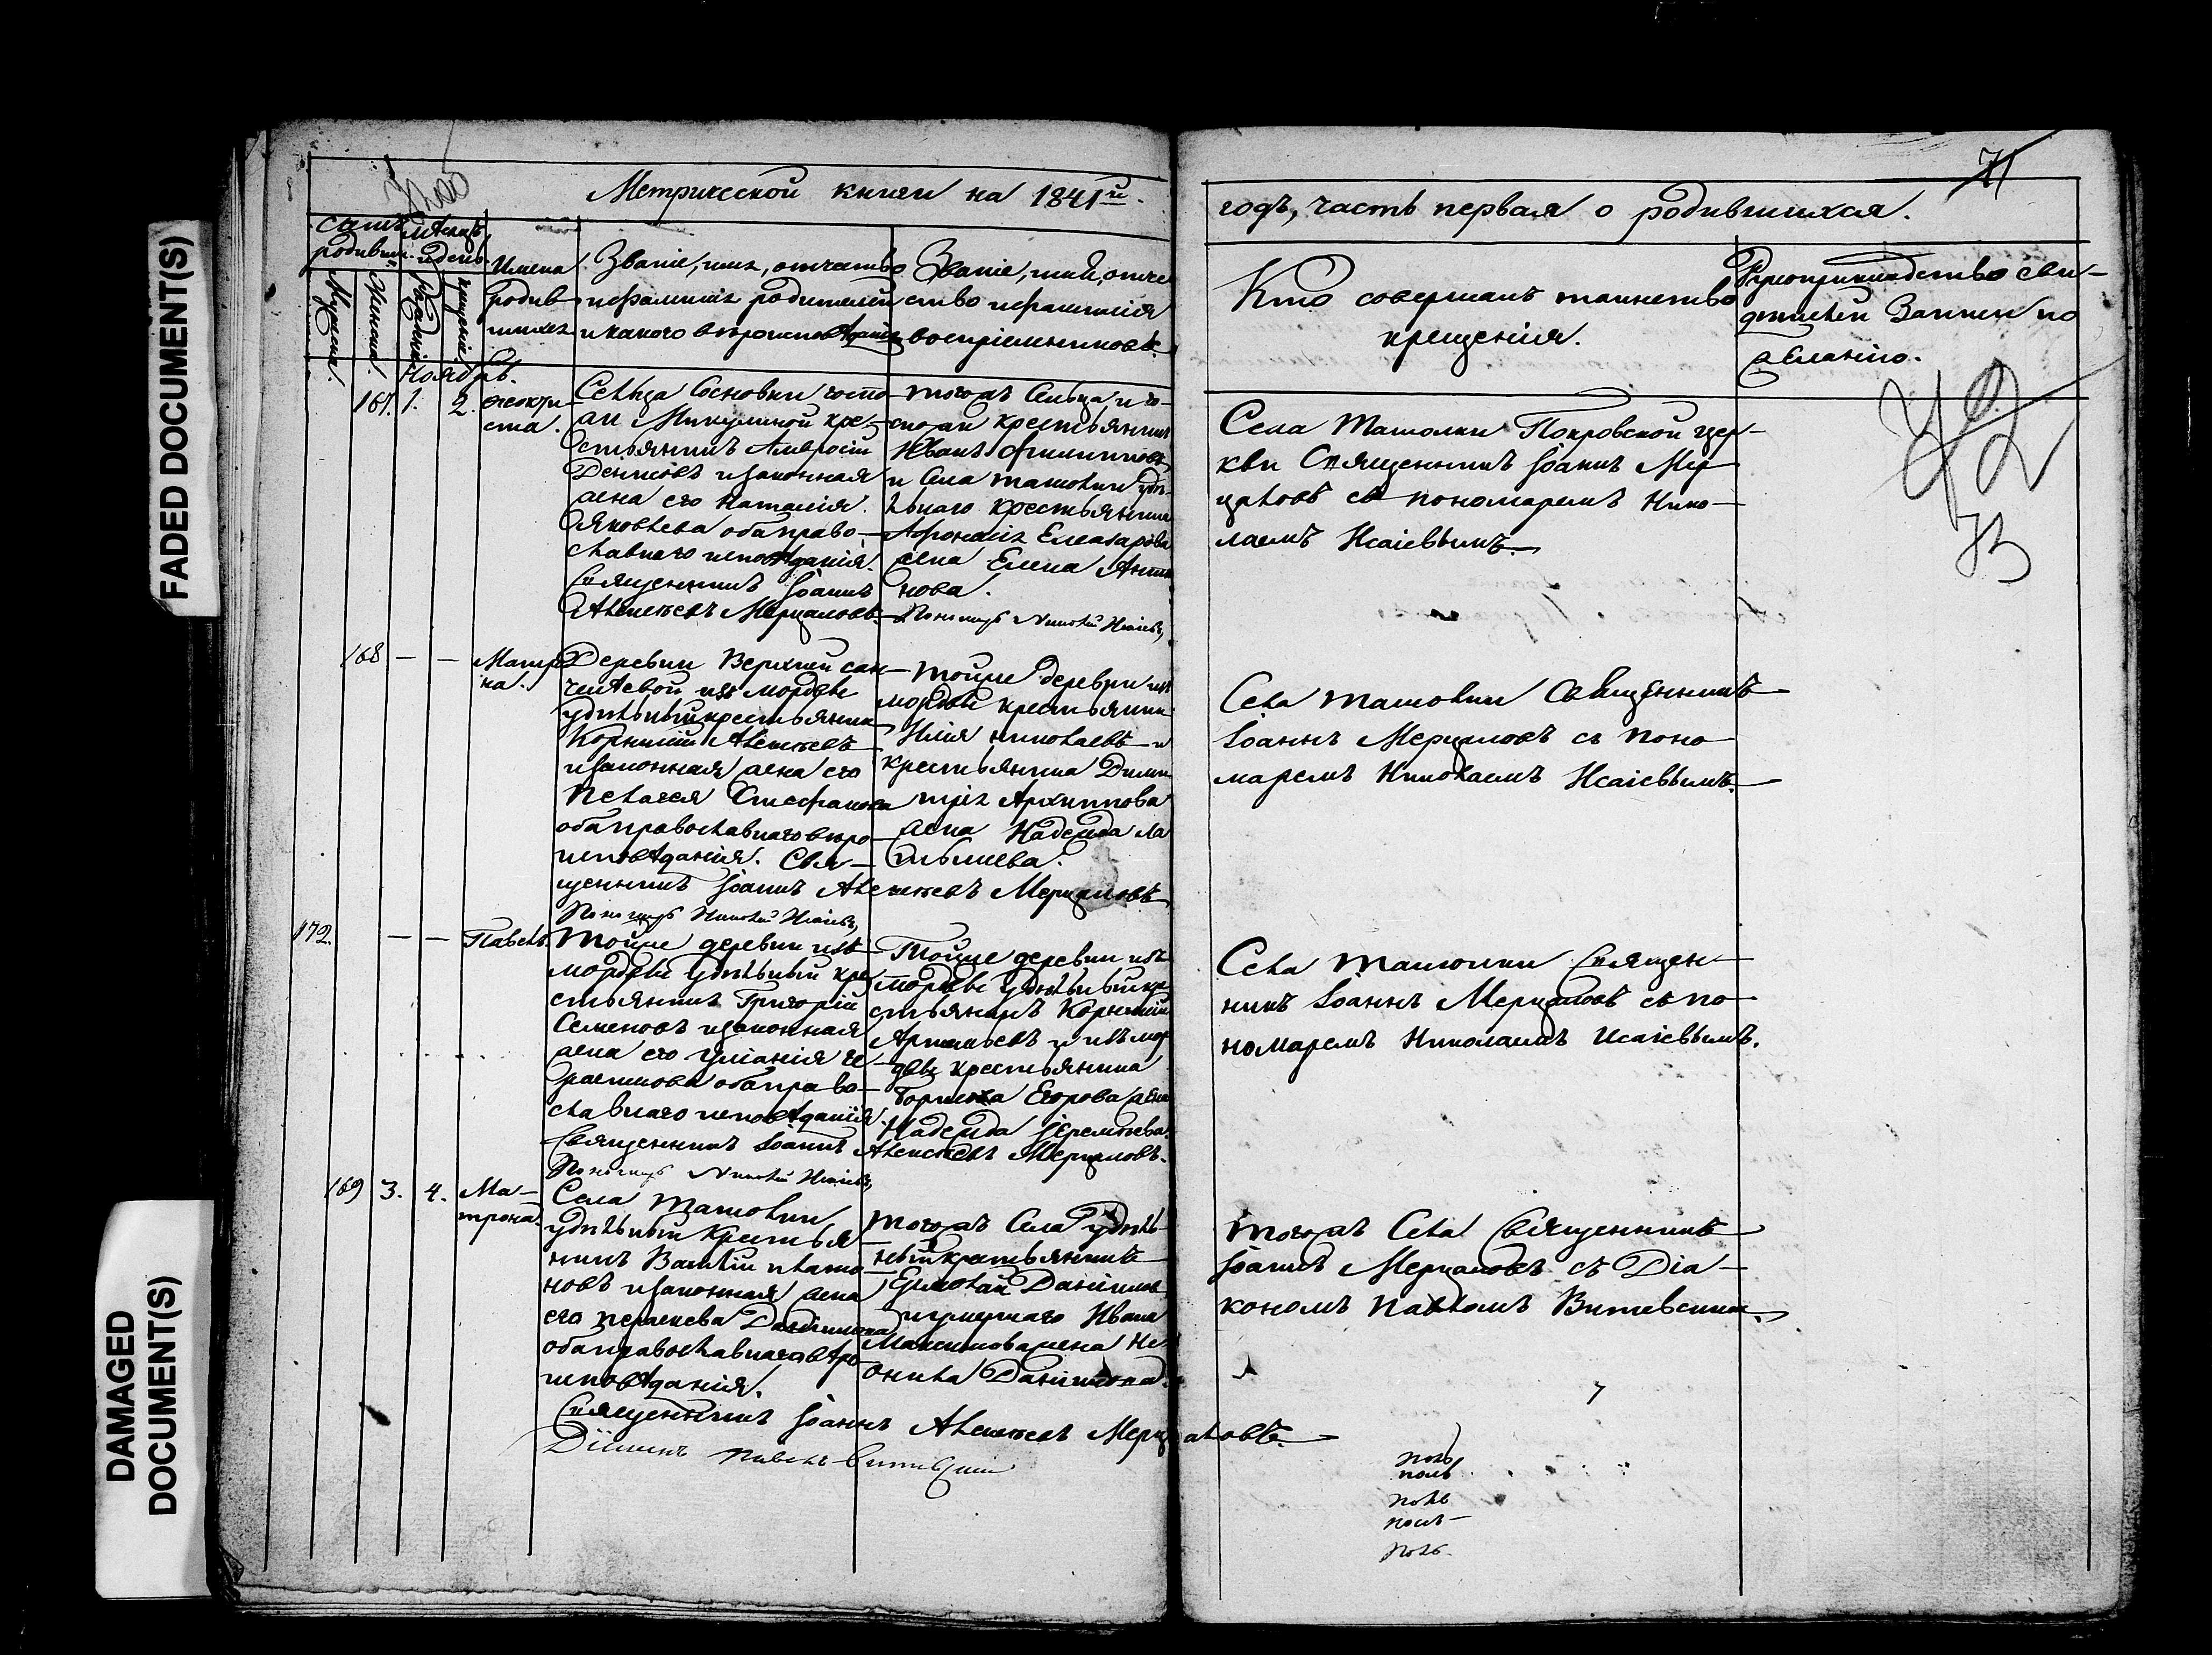 FADED DOCUMENT(S)
DAMAGED
DOCUMENT(S)
Метрической книги на 1841й.
годъ, часть первая о родившихся.
71
Счетъ
родивш.
Мѣсяцъ
и день
Имена
родив
шихся
Званіе, имя, отчество
и фамилія родителей
и какого вѣроисповѣданія
Званіе, имя, отче
ство и фамилія
воспріемниковъ.
Кто совершалъ таинство
крещенія.
Рукоприкладство сви-
дѣтелей записи по
желанію.
Мужеска.
Женска.
Рожденія
Крещенія.
Ноябрь.
167. 1. 2. Ѳеокти
ста.
Сельца Сосновки госпо
жи Микулиной кре-
стьянинъ Амвросій
Денисовъ и законная
жена его Наталія
Яковлева оба право-
славнаго исповѣданія.
Священникъ Іоаннъ
Алексѣевъ Мерцаловъ.
тогожъ Сельца и го-
спожи крестьянинъ
Иванъ Филипповъ
и Села Ташолки удѣ-
льнаго крестьянина
Аѳонасія Елеазарова
жена Елена Анти
нова.
Пономарь Николай Исаіевъ
Села Ташолки Покровской цер-
кви Священникъ Іоаннъ Мер
цаловъ съ пономаремъ Нико-
лаемъ Исаіевымъ
72
73
168 — — Матро
на.
Деревни Верхней сан
челѣевой изъ мордвы
удѣльный крестьянинъ
Корнилій Алексѣевъ
и законная жена его
Пелагея Стефанова
оба православнаго вѣро-
исповѣданія. Свя-
щенникъ Іоаннъ Алексѣевъ Мерцаловъ
Пономарь Николай Исаіевъ
тойже деревни изъ
мордвы крестьянинъ
Илія Николаевъ и
крестьянина Дими
трія Архиппова
жена Надежда
Села Ташолки Священникъ
Іоаннъ Мерцаловъ съ поно-
маремъ Николаемъ Исаіевымъ.
172. — — Павелъ.
Тойже деревни изъ
мордвы Удѣльный кре
стьянинъ Григорій
Семеновъ и законная
жена его Уліанія Ге
расимова оба право-
славнаго исповѣданія.
Священникъ Іоаннъ Алексѣевъ Мерцаловъ.
Пономарь Николай Исаіевъ
Тойже деревни изъ
мордвы Удѣльный кре
стьянинъ Корнилій
и изъ мор
двы крестьянина
Егорова жена
Надежда Іеремѣева.
Села Ташолки Священ-
никъ Іоаннъ Мерцаловъ съ по-
номаремъ Николаемъ Исаіевымъ.
169 3. 4. Ма-
трона.
Села Ташолки
удѣльный Крестья
нинъ Василій Плато
новъ и законная жена
его Даніилова
оба православнаго вѣро
исповѣданія.
Священникъ Іоаннъ Алексѣевъ Мерцаловъ.
Діаконъ Павелъ Витевскій
тогожъ Села удѣль
ный крестьянинъ
Ермолай Даніиловъ
и умершаго Ивана
Максимова жена Не
онила Даніилова.
тогожъ Села Священникъ
Іоаннъ Мерцаловъ съ Діа-
кономъ Павломъ Витевскимъ.